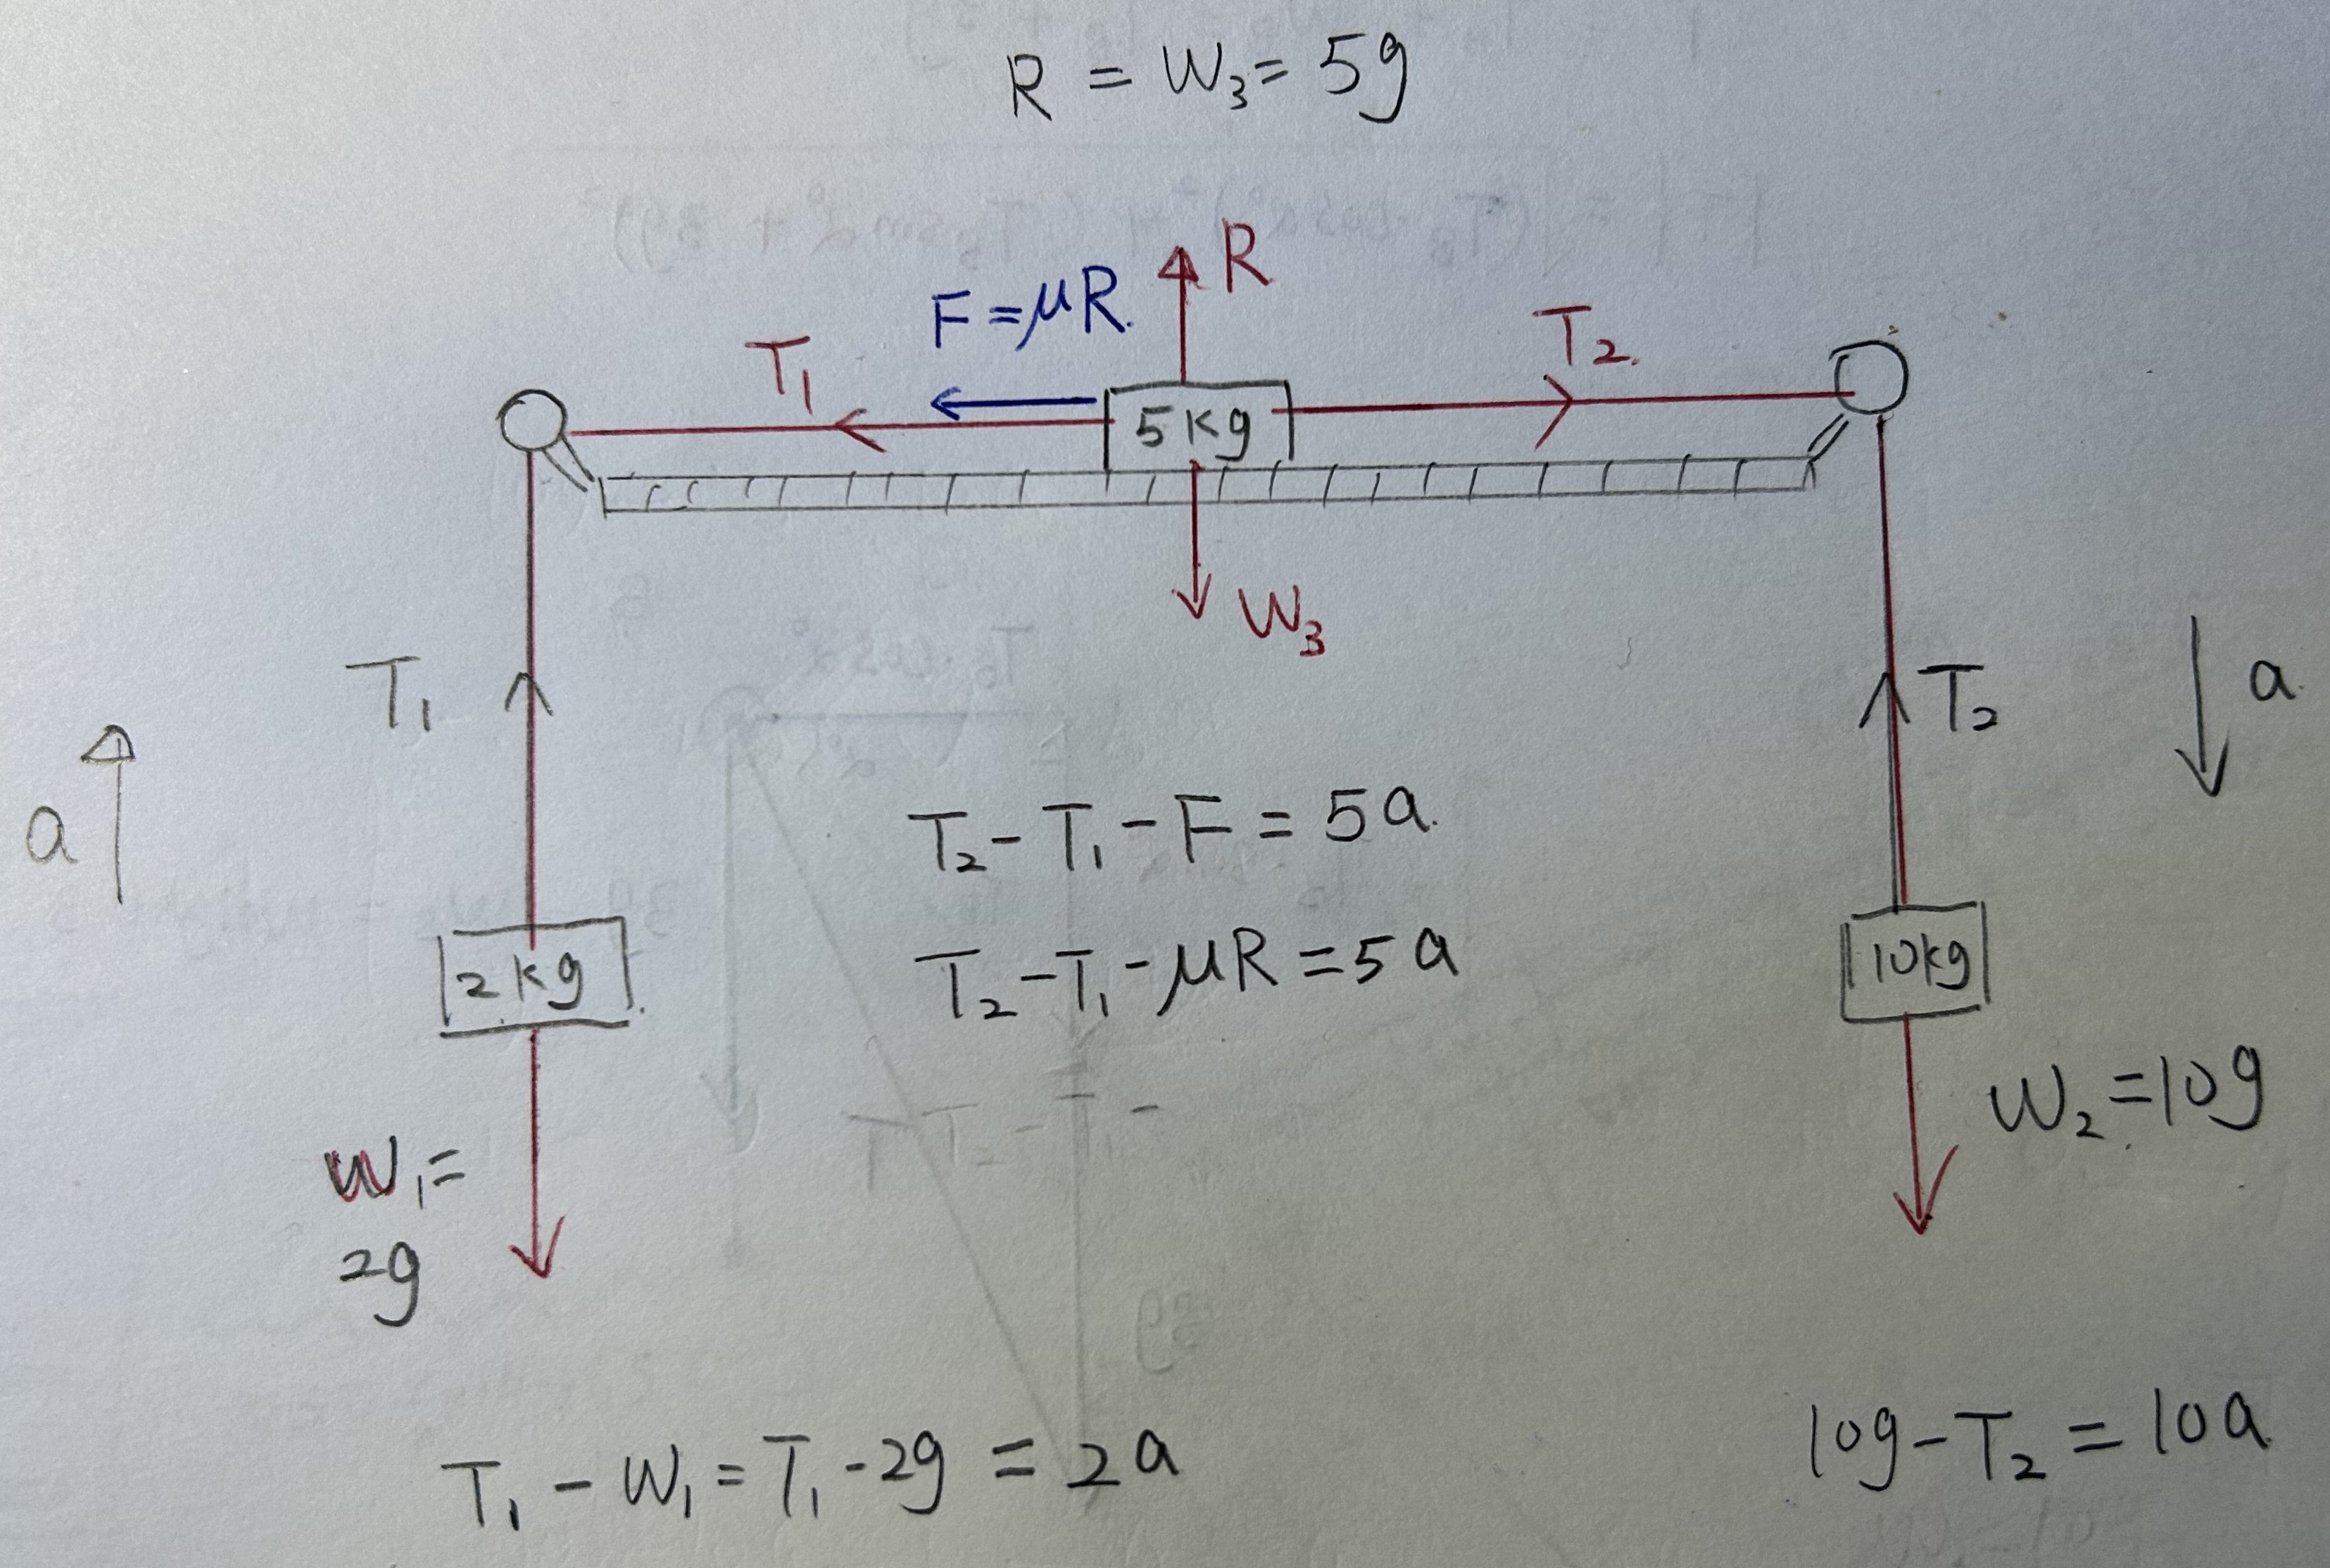 R = W₃ = 5g
R
F = μR.
T₁
T₂.
5kg
W₃
T₁
T₂
a
a
T₂ - T₁ - F = 5a.
T₂ - T₁ - μR = 5a
2kg
10kg
W₂ = 10g
W₁ =
2g
T₁ - W₁ = T₁ - 2g = 2a
10g - T₂ = 10a